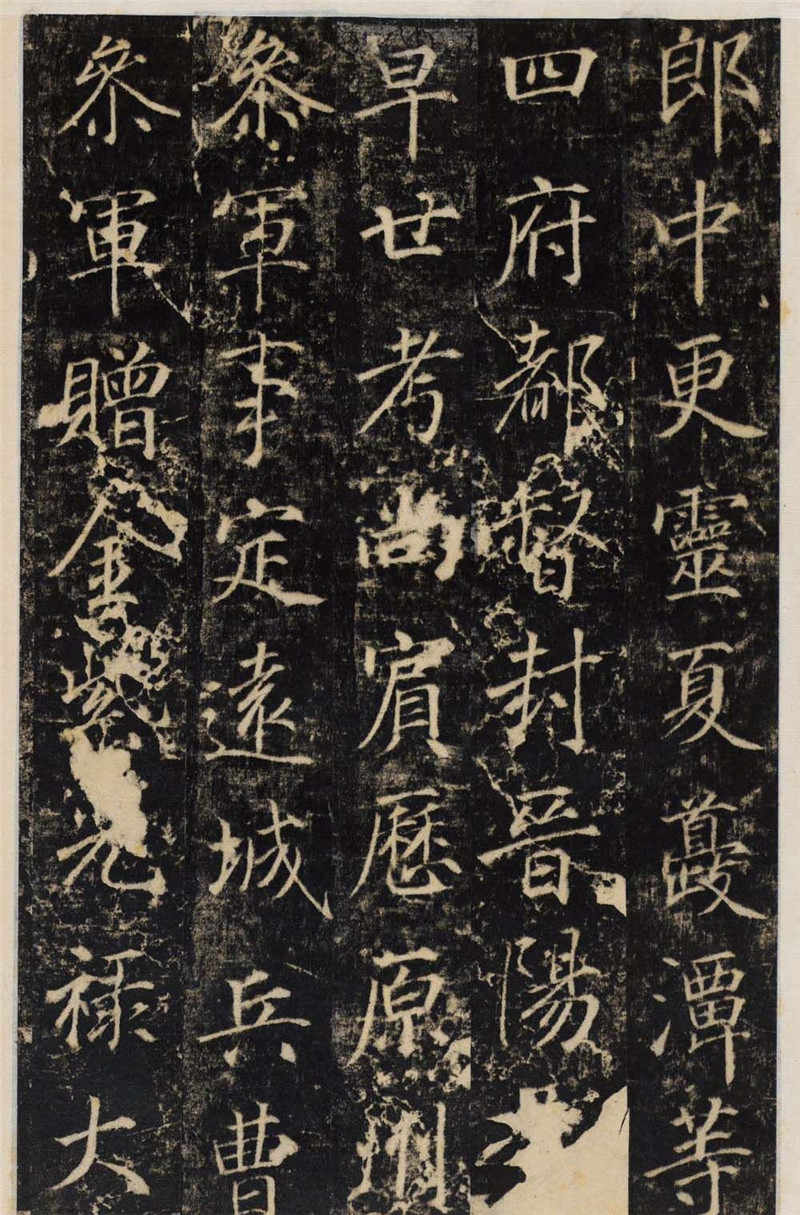 郎中更靈夏夔潭等
四府都督封晉陽
早世考尚賔歷原州
叅軍事定遠城兵曹
叅軍贈金紫光祿大